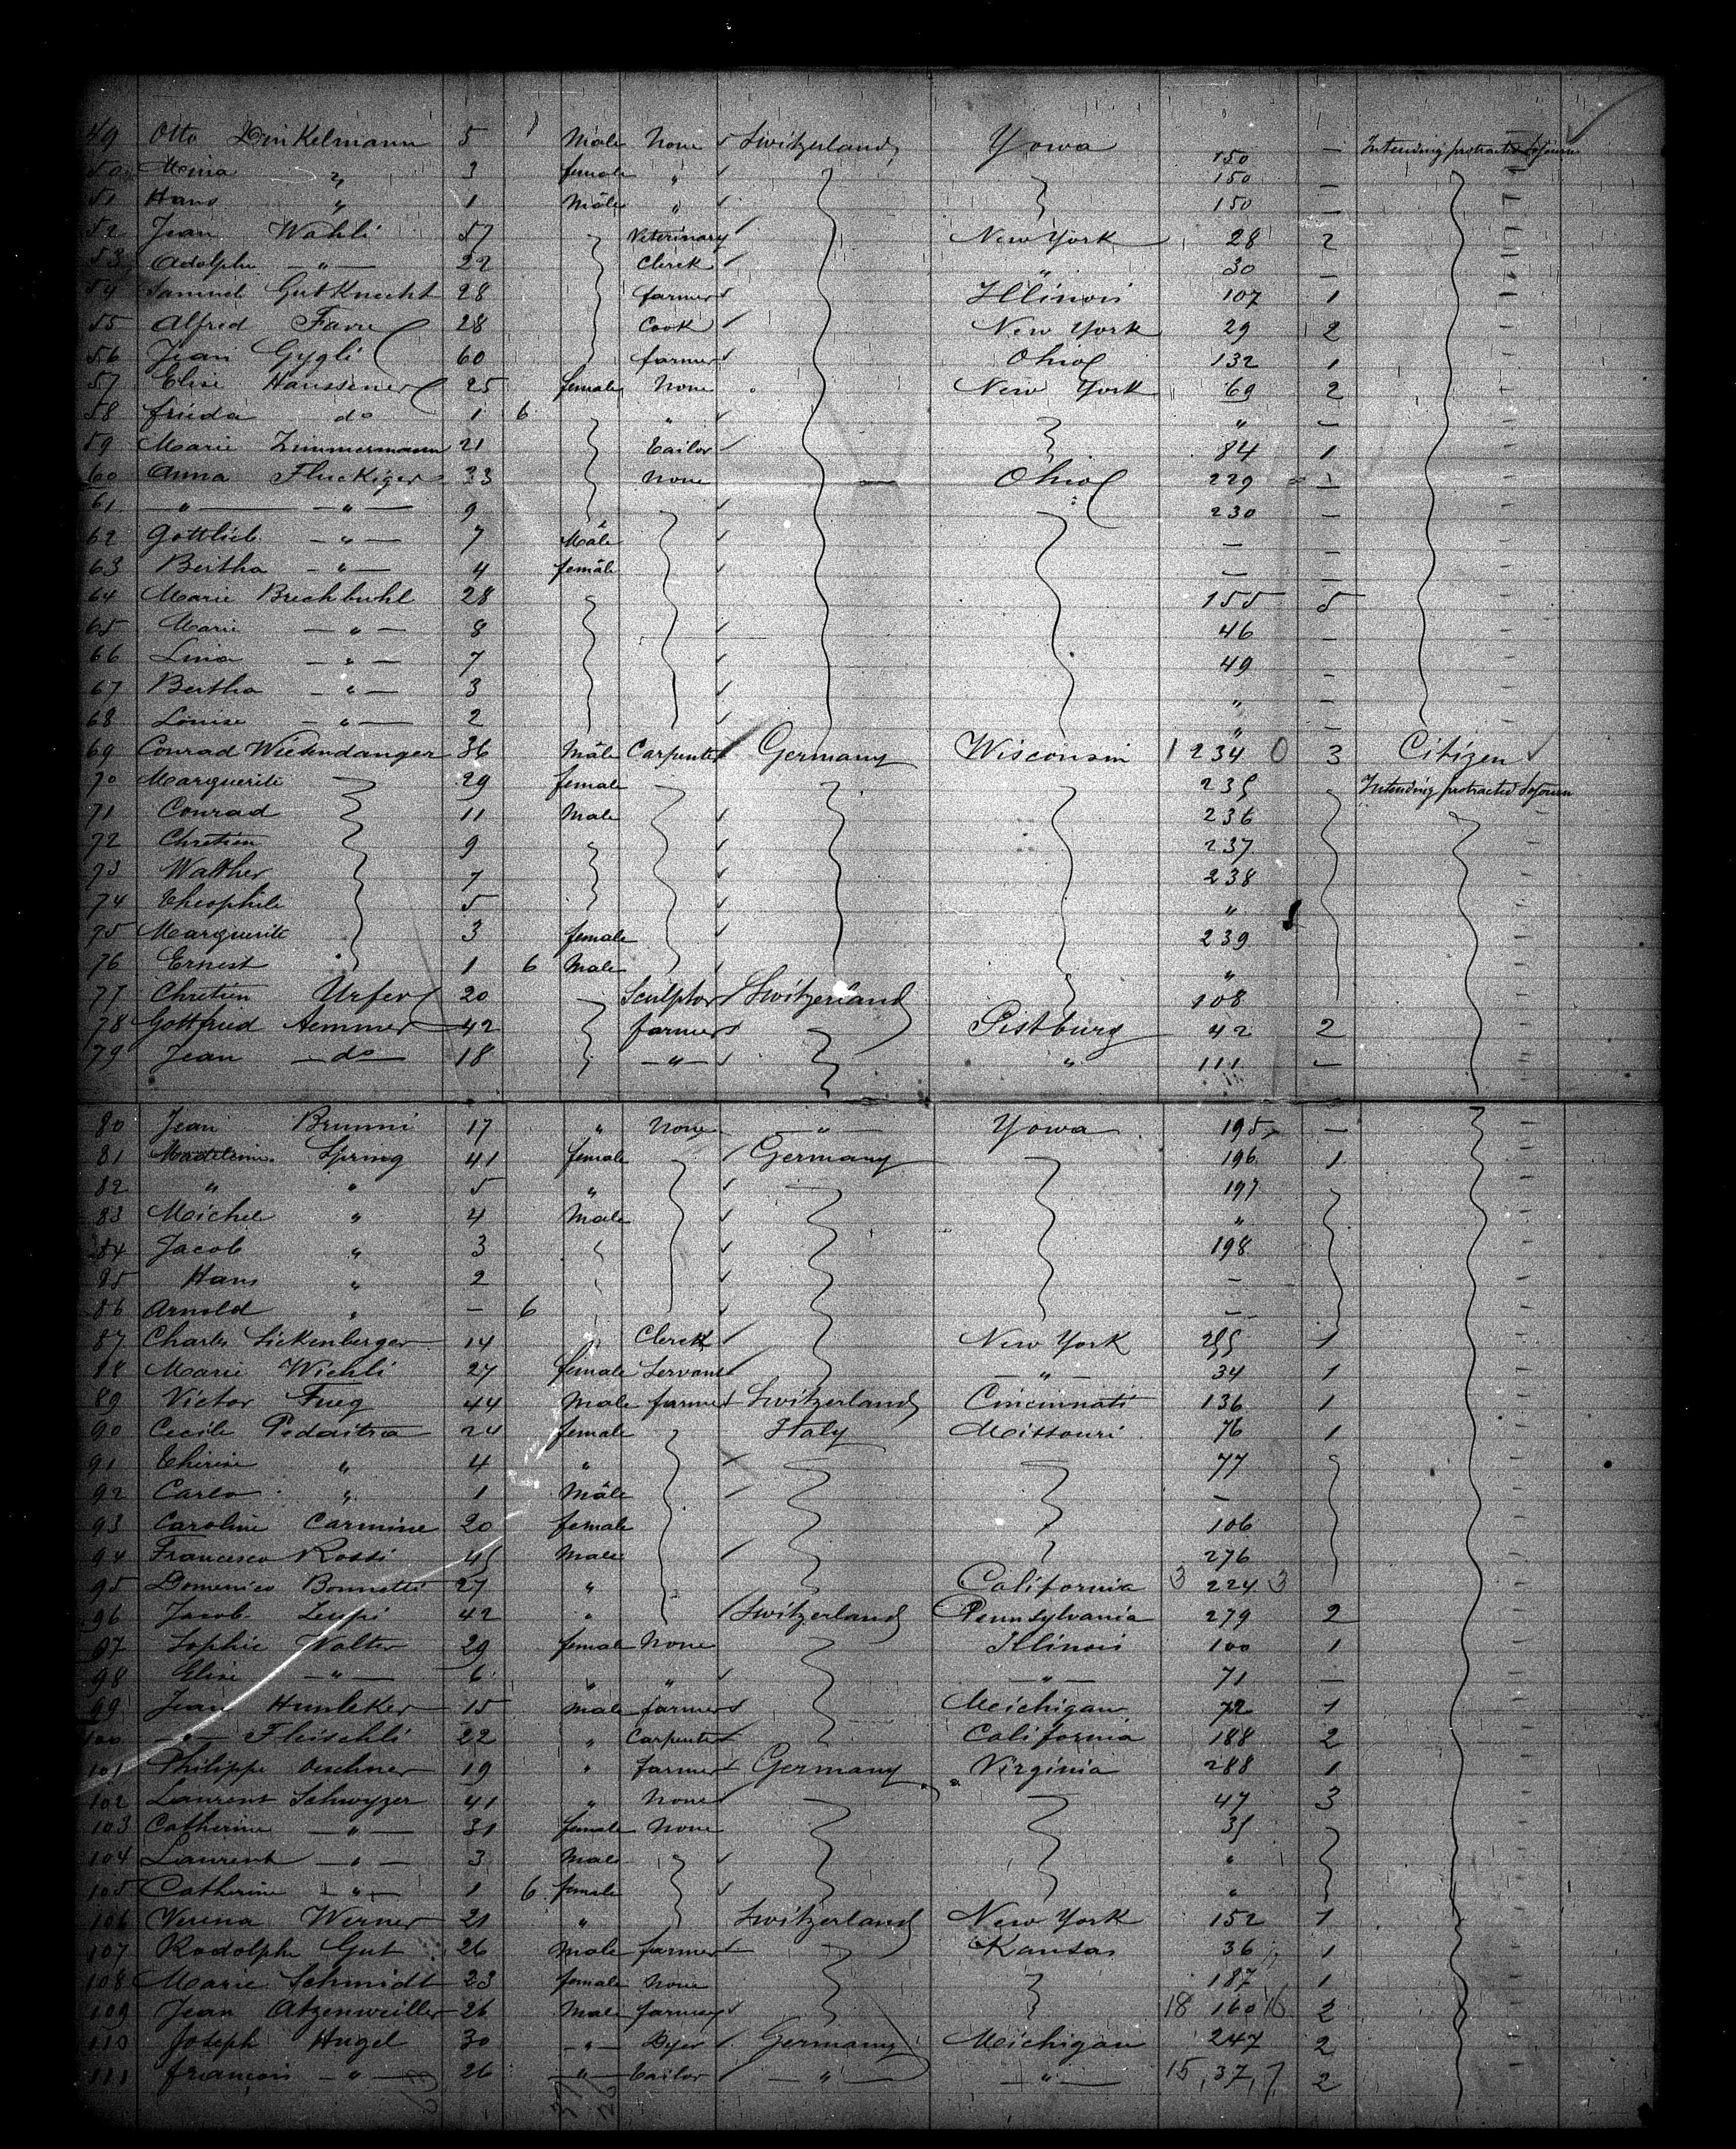 49 Otto Dinkelmann 5 Male None Switzerland Yowa 150 — Intending protracted Sojourn
50 Meina " 3 female " 150 —
51 Hans " 1 Male " 150 —
52 Jean Wahli 57 Veterinary New York 28 2
53 Adolphe — " — 22 Clerck " 30 —
54 Samuel Gutknecht 28 farmer Illinois 107 1
55 Alfred Favre 28 Cook New York 29 2
56 Jean Gygli 60 farmer Ohio 132 1
57 Elise Haussener 25 female None New York 69 2
58 frieda do 1 6 " " —
59 Marie Zimmermann 21 Tailor 84 1
60 Anna Fluckiger 33 None Ohio 229 1
61 — " — — " — 9 230 —
62 Gottlieb — " — 7 Male — —
63 Bertha — " — 4 female — —
64 Marie Brechbuhl 28 155 5
65 Marie — " — 8 46 —
66 Lina — " — 7 49 —
67 Bertha — " — 3 " —
68 Louise — " — 2 " —
69 Conrad Wiedendanger 36 Male Carpenter Germany Wisconsin 1 234 0 3 Citizen
70 Marguerite 29 female 235 Intending protracted Sojourn
71 Conrad 11 Male 236
72 Chretien 9 237
73 Walther 7 238
74 Theophile 5 "
75 Marguerite 3 female 239
76 Ernest 1 6 Male "
77 Chretien Urfer 20 Sculptor Switzerland 108
78 Gottfried Aemmer 42 farmer Pistburg 42 2
79 Jean — do — 18 — " — " 111 —
80 Jean Brunni 17 " None — " — Yowa 195 —
81 Madeleine Spring 41 female Germany 196 1
82 " " 5 " 197
83 Michel " 4 Male "
84 Jacob " 3 198
85 Hans " 2 —
86 Arnold " — 6 —
87 Charles Sickenberger 14 " Clerck New York 255 1
88 Marie Wiehli 27 female Servant — " — 34 1
89 Victor Fueg 44 Male farmer Switzerland Cincinnati 136 1
90 Cecile Pedaitra 24 female Italy Missouri 76 1
91 Therese " 4 " 77
92 Carlo " 1 Male —
93 Caroline Carmine 20 female 106
94 Francesco Rossi 45 Male 276
95 Domenico Bonnetti 27 " California 3 224 3
96 Jacob Leupi 42 " Switzerland Pennsylvania 279 2
97 Sophie Walter 29 female None Illinois 100 1
98 Elise — " — 6 " " — " — 71 —
99 Jean Hunleker 15 Male farmer Meichigan 72 1
100 — " — Fleischli 22 " Carpenter California 188 2
101 Philippe Oeschner 19 " farmer Germany Virginia 288 1
102 Laurent Schwyzer 41 " None 47 3
103 Catherine — " — 31 female None 35
104 Laurent — " — 3 Male "
105 Catherine — " — 1 6 female "
106 Verena Werner 21 " Switzerland New York 152 1
107 Rodolphe Gut 26 Male farmer Kansas 36 1
108 Marie Schmidt 23 female None 187 1
109 Jean Atzenweiller 26 Male farmer 18 160 16 2
110 Joseph Hugel 30 — " — Dyer Germany Meichigan 247 2
111 francois — " — 26 — " — Tailor — " — — " — 15, 37, 7 2